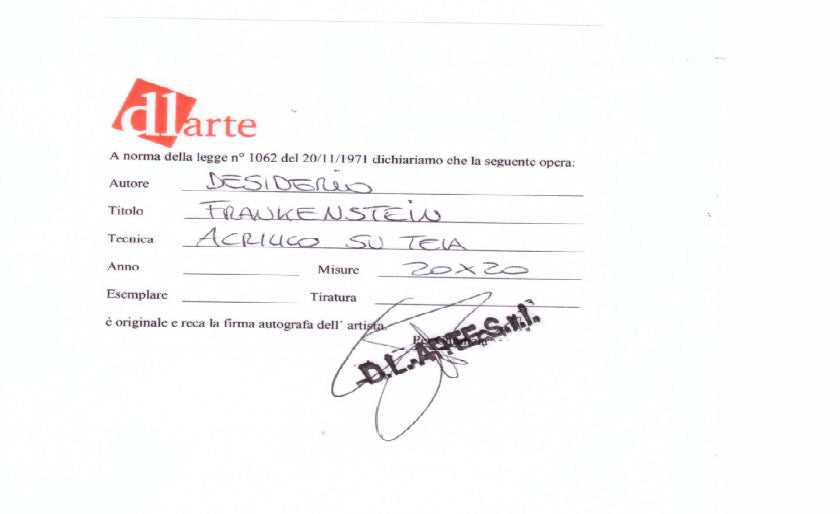 dlarte
A norma della legge n° 1062 del 20/11/1971 dichiariamo che la seguente opera:
Autore DESIDERIO
Titolo FRANKENSTEIN
Tecnica ACRILICO SU TELA
Anno Misure 20x20
Esemplare Tiratura
è originale e reca la firma autografa dell' artista.
D.L. ARTE S.r.l.